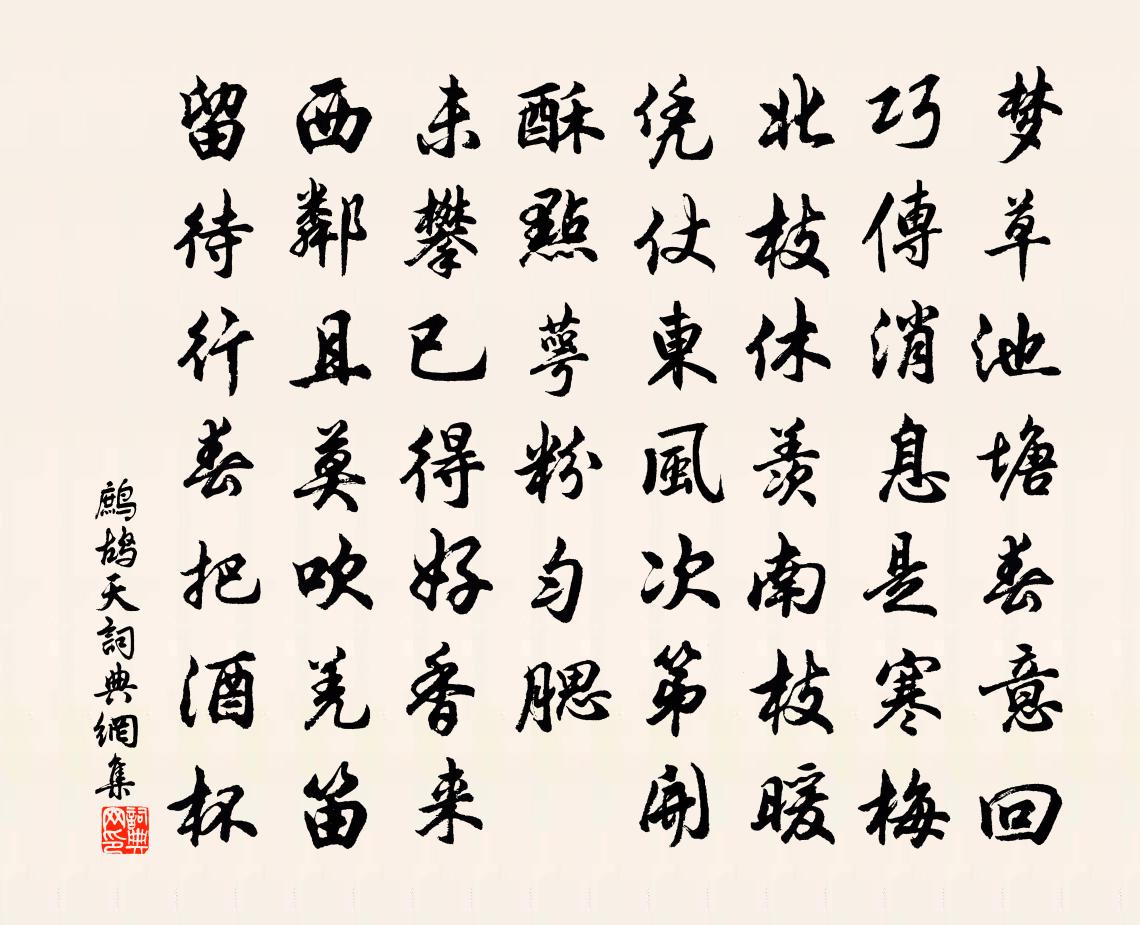 梦草池塘春意回
巧傳消息是寒梅
北枝休羨南枝暖
凭仗東風次第開
酥點萼粉勻腮
未攀已得好香来
西鄰且莫吹羌笛
留待行春把酒杯
鷓鴣天詞典網集
詞典网印